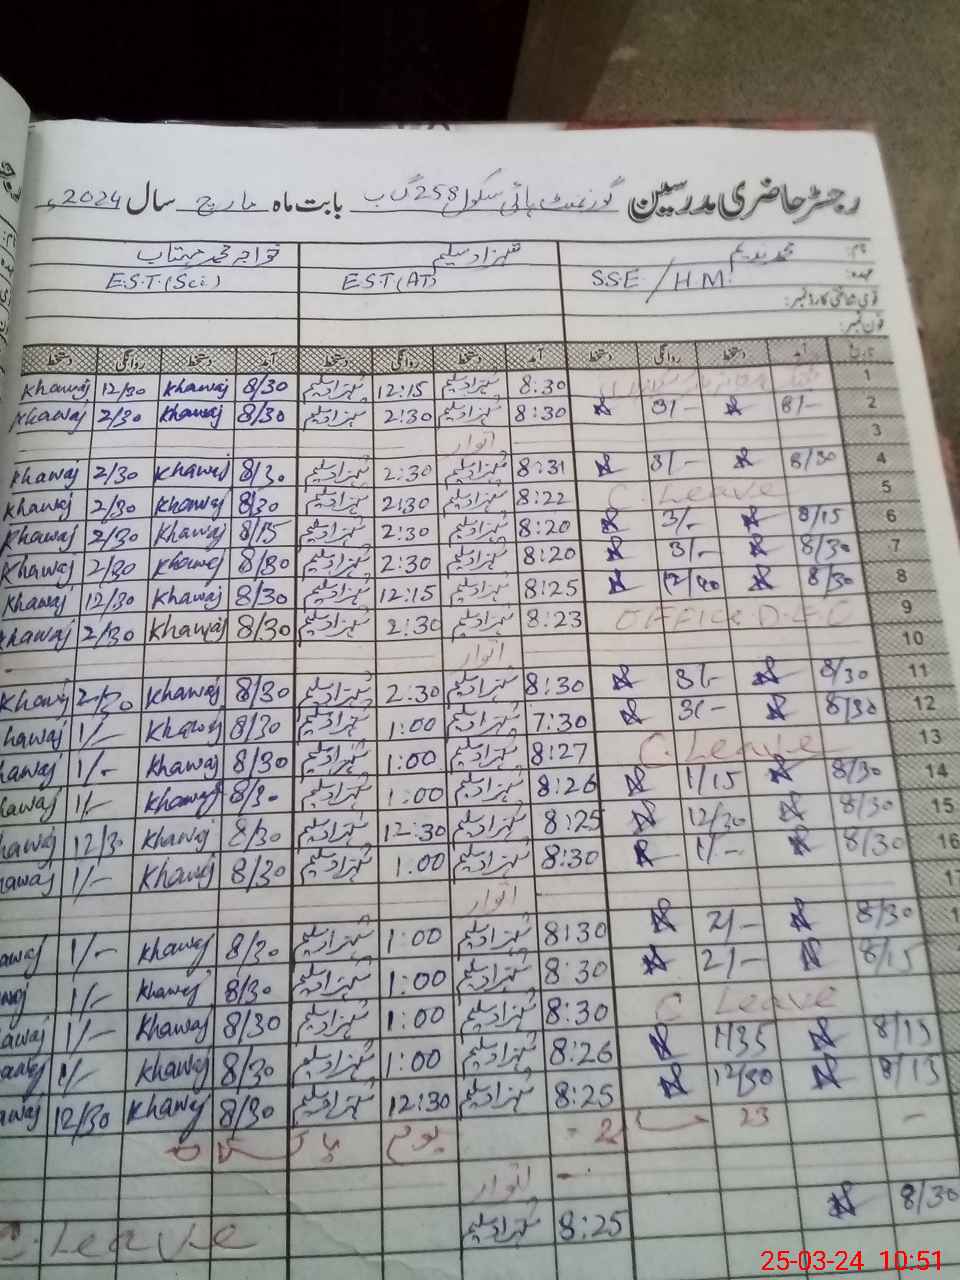 رجسٹر حاضری مدرسین گورنمنٹ ہائی سکول 258 گ ب بابت ماہ مارچ سال 2024ء
نام: محمد ندیم شہزاد سلیم خواجہ محمد مہتاب
عہدہ: S.S.E / H.M. E.S.T (AT) E.S.T (Sci)
قومی شناختی کارڈ نمبر:
فون نمبر:
تاریخ آمد دستخط روانگی دستخط آمد دستخط روانگی دستخط آمد دستخط روانگی دستخط
1 8:30 شہزاد سلیم 12:15 شہزاد سلیم 8/30 Khawaj 12/30 Khawaj
2 8/- 3/- 8:30 شہزاد سلیم 2:30 شہزاد سلیم 8/30 Khawaj 2/30 Khawaj
3 اتوار
4 8/30 3/- 8:31 شہزاد سلیم 2:30 شہزاد سلیم 8/30 Khawaj 2/30 Khawaj
5 C. Leave 8:22 شہزاد سلیم 2:30 شہزاد سلیم 8/30 Khawaj 2/30 Khawaj
6 8/15 3/- 8:20 شہزاد سلیم 2:30 شہزاد سلیم 8/15 Khawaj 2/30 Khawaj
7 8/30 3/- 8:20 شہزاد سلیم 2:30 شہزاد سلیم 8/30 Khawaj 2/30 Khawaj
8 8/30 12/40 8:25 شہزاد سلیم 12:15 شہزاد سلیم 8/30 Khawaj 12/30 Khawaj
9 OFFICE D.E.O 8:23 شہزاد سلیم 2:30 شہزاد سلیم 8/30 Khawaj 2/30 Khawaj
10 اتوار
11 8/30 3/- 8:30 شہزاد سلیم 2:30 شہزاد سلیم 8/30 Khawaj 2/30 Khawaj
12 8/30 3/- 7:30 شہزاد سلیم 1:00 شہزاد سلیم 8/30 Khawaj 1/- hawaj
13 C. Leave 8:27 شہزاد سلیم 1:00 شہزاد سلیم 8/30 Khawaj 1/- hawaj
14 8/30 1/15 8:26 شہزاد سلیم 1:00 شہزاد سلیم 8/30 Khawaj 1/- hawaj
15 8/30 12/30 8:25 شہزاد سلیم 12:30 شہزاد سلیم 8/30 Khawaj 12/30 hawaj
16 8/30 1/- 8:30 شہزاد سلیم 1:00 شہزاد سلیم 8/30 Khawaj 1/- awaj
17 اتوار
8/30 2/- 8:30 شہزاد سلیم 1:00 شہزاد سلیم 8/30 Khawaj 1/- awaj
8/15 2/- 8:30 شہزاد سلیم 1:00 شہزاد سلیم 8/30 Khawaj 1/-
C Leave 8:30 شہزاد سلیم 1:00 شہزاد سلیم 8/30 Khawaj 1/- awaj
8/15 1/35 8:26 شہزاد سلیم 1:00 شہزاد سلیم 8/30 Khawaj 1/-
8/15 12/30 8:25 شہزاد سلیم 12:30 شہزاد سلیم 8/30 Khawaj 12/30 awaj
23 یوم پاکستان
اتوار
8/30 8:25 شہزاد سلیم C. Leave
25-03-24 10:51